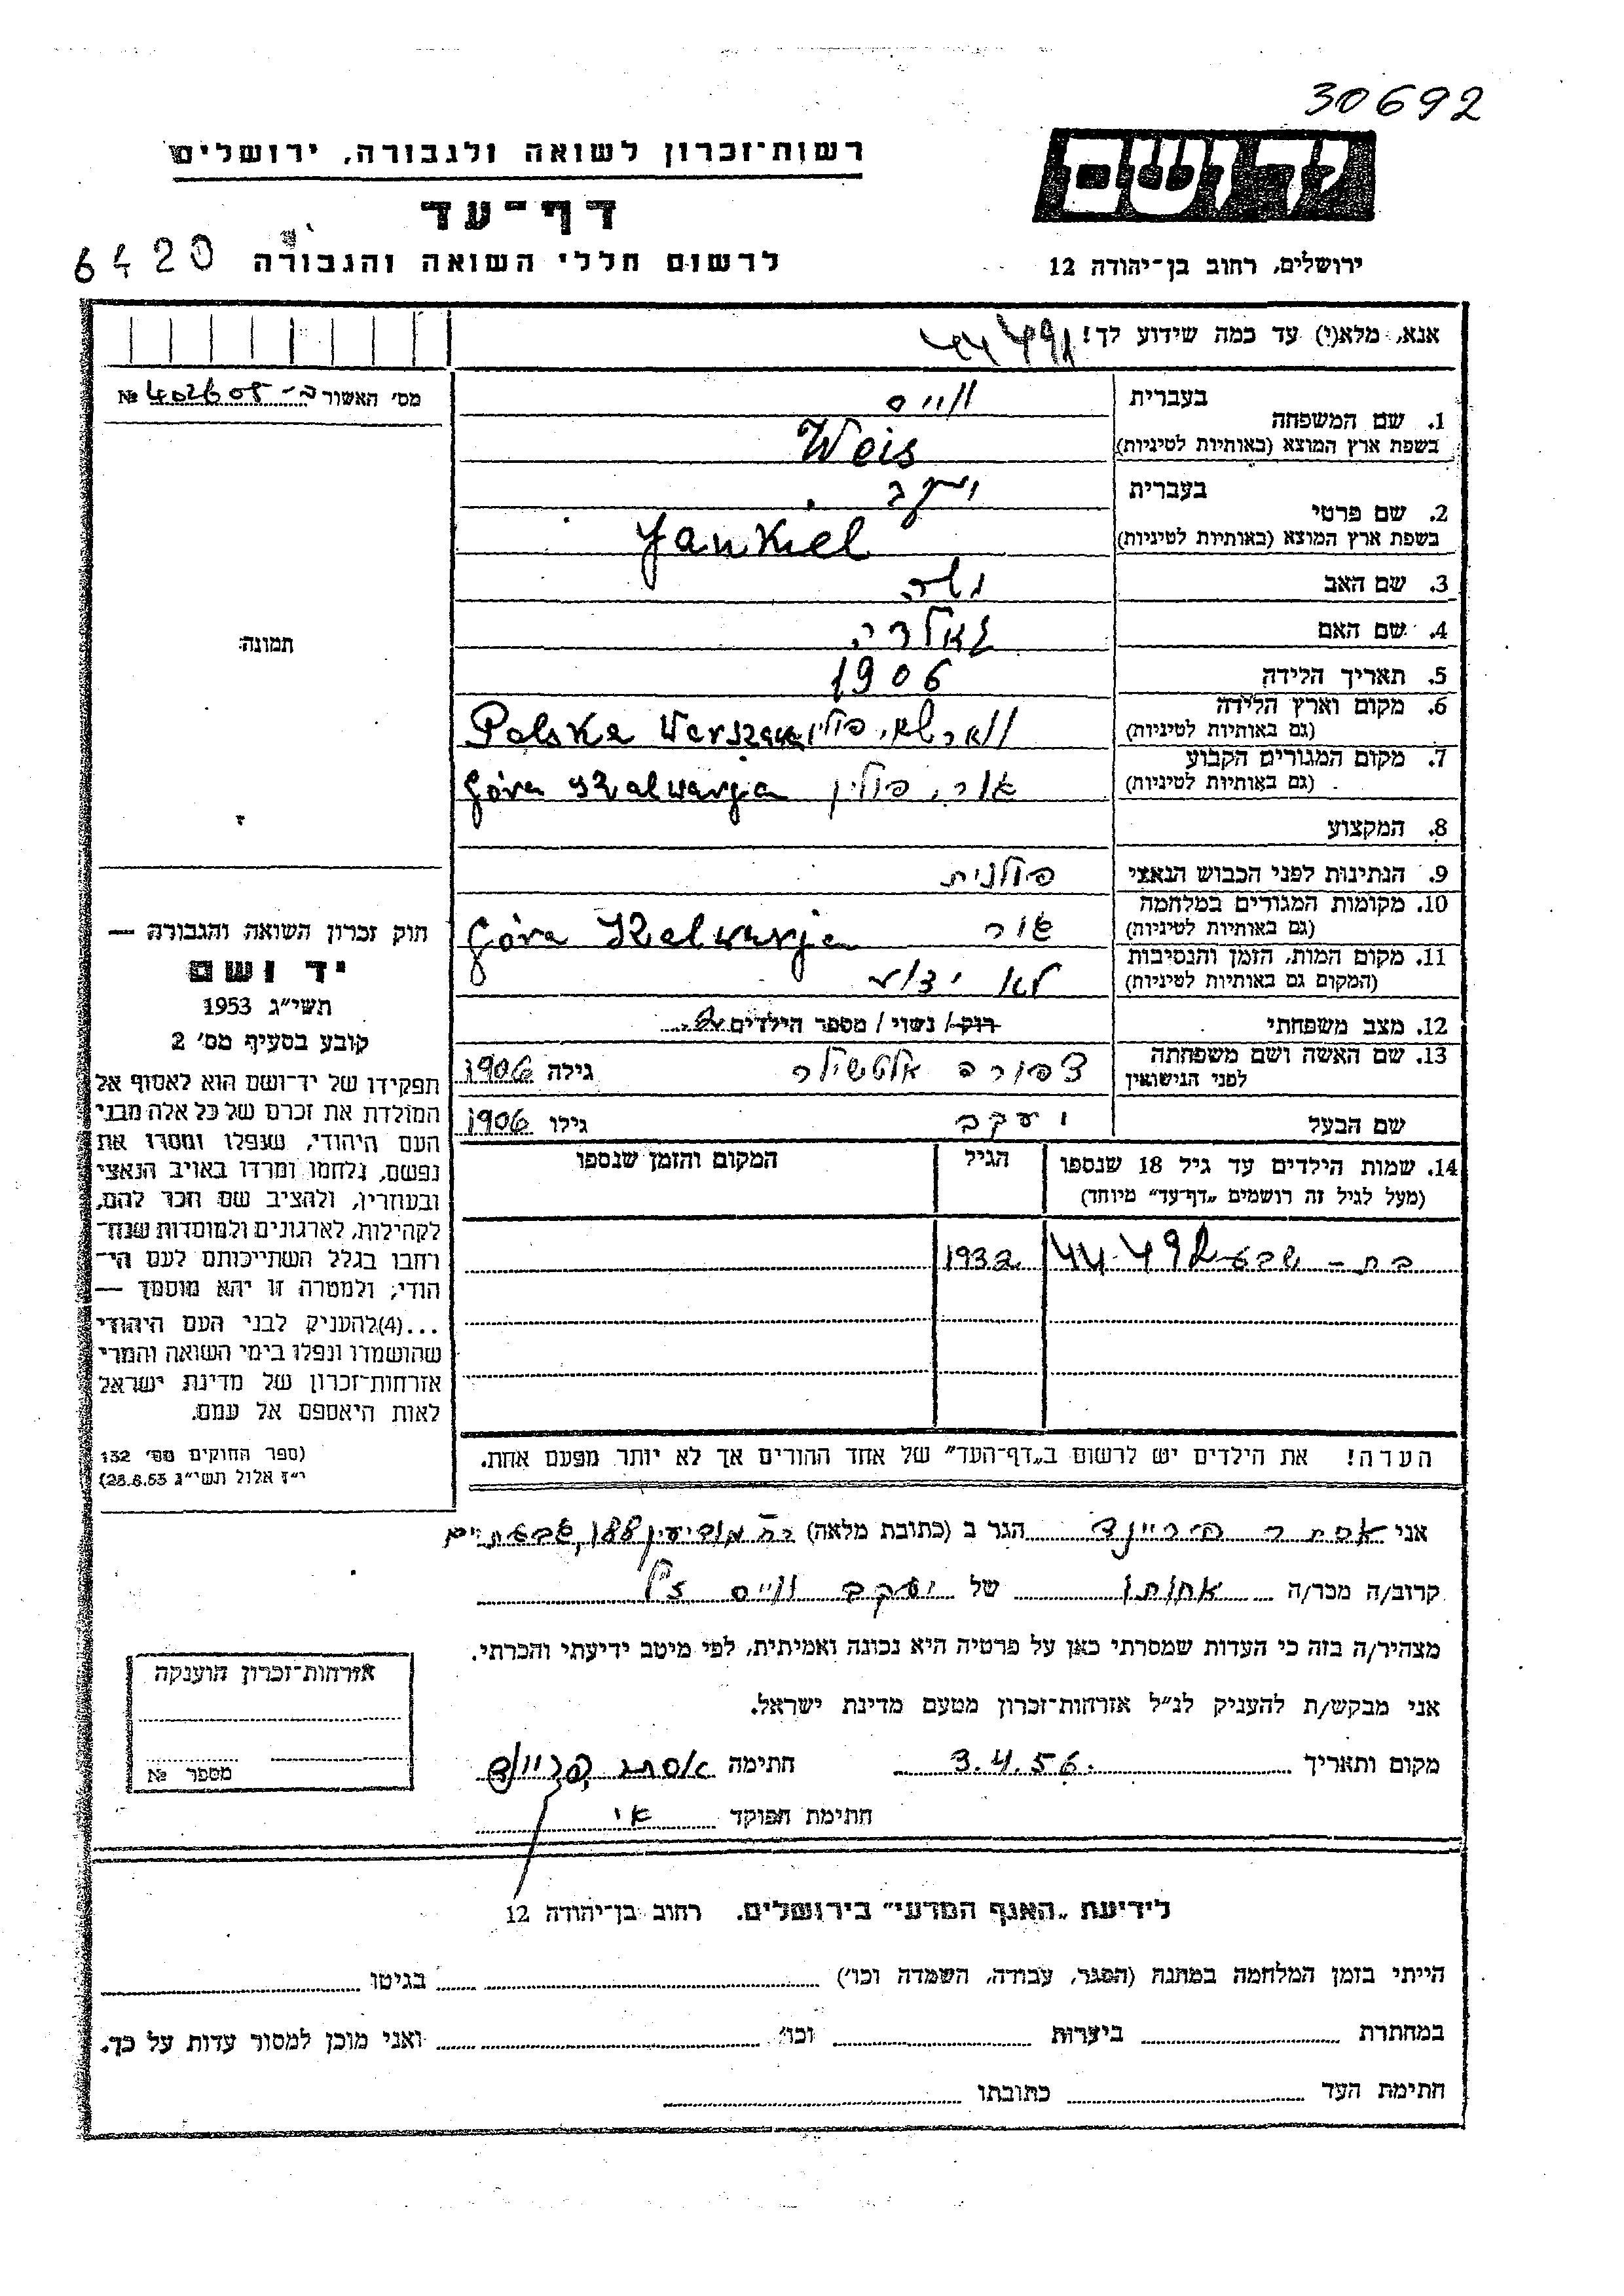 30692
יד ושם
רשות־זכרון לשואה ולגבורה, ירושלים
דף־עד
ירושלים, רחוב בן־יהודה 12
לרשום חללי השואה והגבורה 6420
אנא, מלא(י) עד כמה שידוע לך!
מס' האשור
בעברית ווייס
1. שם המשפחה
בשפת ארץ המוצא (באותיות לטיניות) Weis
בעברית
2. שם פרטי
בשפת ארץ המוצא (באותיות לטיניות) Jankiel
3. שם האב
4. שם האם
5. תאריך הלידה 1906
6. מקום וארץ הלידה
(גם באותיות לטיניות) פולין Polska Warszawa
7. מקום המגורים הקבוע
(גם באותיות לטיניות) פולין Góra Kalwarja
8. המקצוע
9. הנתינות לפני הכבוש הנאצי פולנית
10. מקומות המגורים במלחמה
(גם באותיות לטיניות) Góra Kalwarja
11. מקום המות, הזמן והנסיבות
(המקום גם באותיות לטיניות) לא ידוע
12. מצב משפחתי רוק/ נשוי/ מספר הילדים
13. שם האשה ושם משפחתה
לפני הנישואין צפורה גילה 1906
שם הבעל יעקב גילו 1906
14. שמות הילדים עד גיל 18 שנספו
(מעל לגיל זה רושמים „דף־עד” מיוחד)
הגיל
המקום והזמן שנספו
בת־שבע 1932
הערה! את הילדים יש לרשום ב„דף־העד” של אחד ההורים אך לא יותר מפעם אחת.
תמונה:
חוק זכרון השואה והגבורה —
יד ושם
תשי״ג 1953
קובע בסעיף מס' 2
תפקידו של יד־ושם הוא לאסוף אל
המולדת את זכרם של כל אלה מבני
העם היהודי, שנפלו ומסרו את
נפשם, נלחמו ומרדו באויב הנאצי
ובעוזריו, ולהציב שם וזכר להם,
לקהילות, לארגונים ולמוסדות שנח־
רחבו בגלל השתייכותם לעם הי־
הודי; ולמטרה זו יהא מוסמך —
...(4) להעניק לבני העם היהודי
שהושמדו ונפלו בימי השואה והמרי
אזרחות־זכרון של מדינת ישראל
לאות היאספם אל עמם.
(ספר החוקים מס' 132
י״ז אלול תשי״ג 28.8.53)
אני אסתר הגר ב (כתובת מלאה)
קרוב/ה מכר/ה אחותו של יעקב ווייס ז״ל
מצהיר/ה בזה כי העדות שמסרתי כאן על פרטיה היא נכונה ואמיתית, לפי מיטב ידיעתי והכרתי.
אני מבקש/ת להעניק לנ״ל אזרחות־זכרון מטעם מדינת ישראל.
מקום ותאריך 3.4.56 חתימה אסתר
חתימת הפוקד
אזרחות־זכרון הוענקה
מספר №
לידיעת „האגף המדעי” בירושלים. רחוב בן־יהודה 12
הייתי בזמן המלחמה במחנה (הסגר, עבודה, השמדה וכו') בגיטו
במחתרת ביערות וכו' ואני מוכן למסור עדות על כך.
חתימת העד כתובתו